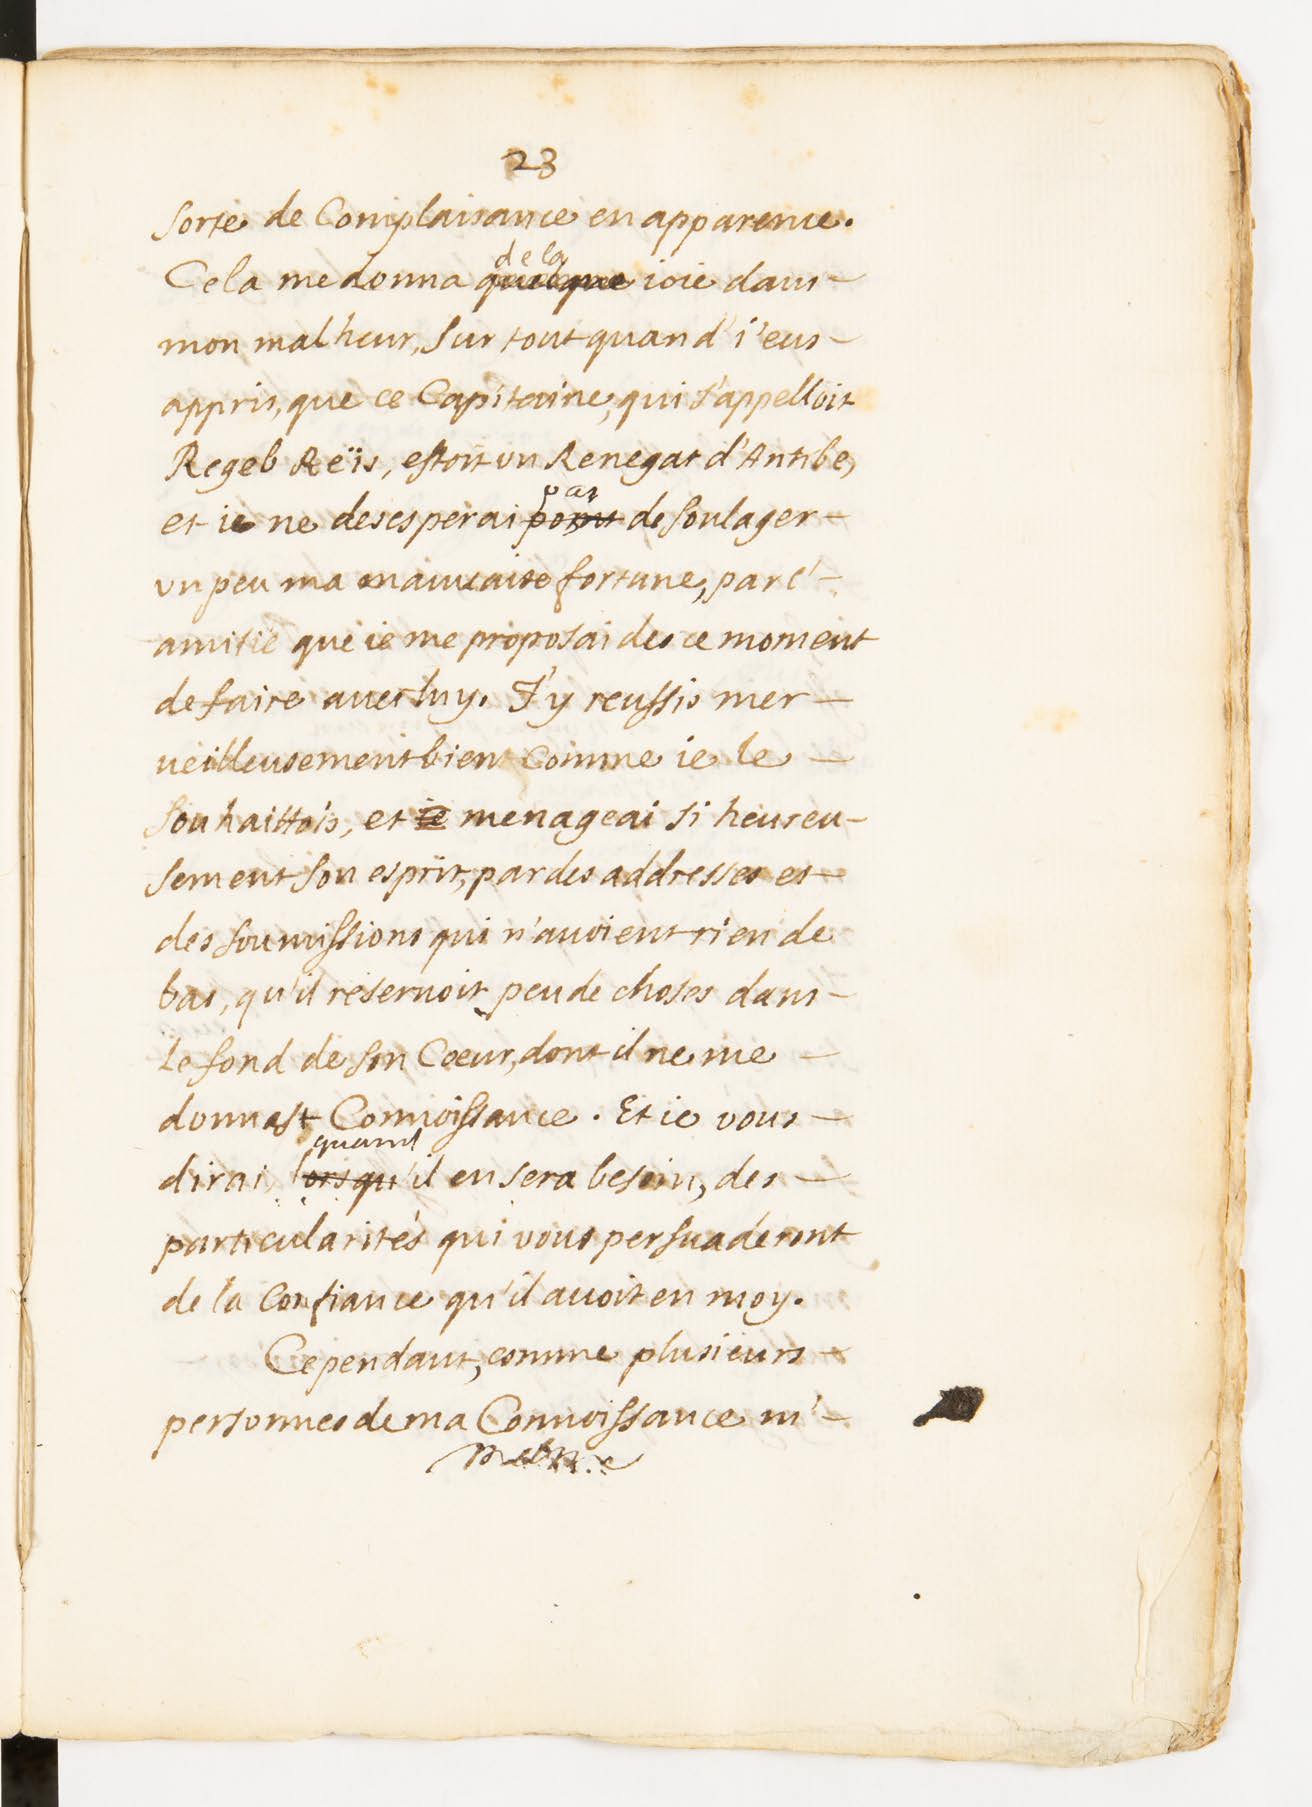 23
sorte de Complaisance en apparence.
de la
Cela me donna quelque ioie dans
mon malheur, sur tout quand i'eus
appris, que ce Capitaine, qui s'appelloit
Regeb Reïs, estoit vn Renegat d'Antibe,
pas
et ie ne desesperai point de soulager
vn peu ma mauuaise fortune, par l'
amitié que ie me proposai des ce moment
de faire auec luy. J'y reussis mer-
ueilleusement bien comme ie le
souhaittois, et ie menageai si heureu-
sement son esprit, par des addresses et
des soumissions qui n'auoient rien de
bas, qu'il reseruoit peu de choses dans
le fond de son Coeur, dont il ne me
donnast Connoissance. Et ie vous
quand
dirai lorsqu'il en sera besoin, des
particularités qui vous persuaderont
de la Confiance qu'il auoit en moy.
Cependant, comme plusieurs
personnes de ma Connoissance m'